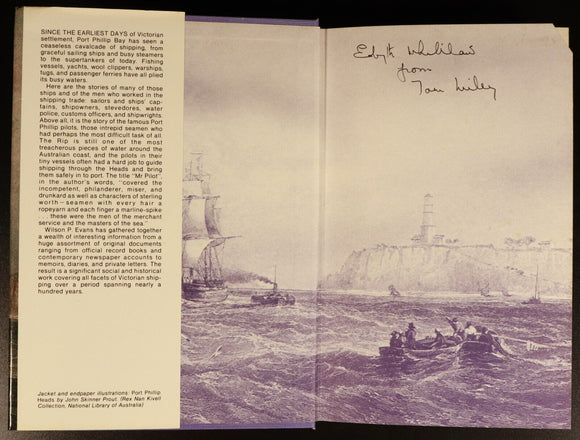 SINCE THE EARLIEST DAYS of Victorian
settlement, Port Phillip Bay has seen a
ceaseless cavalcade of shipping, from
graceful sailing ships and busy steamers
to the supertankers of today. Fishing
vessels, yachts, wool clippers, warships,
tugs, and passenger ferries have all plied
its busy waters.
Here are the stories of many of those
ships and of the men who worked in the
shipping trade: sailors and ships' cap-
tains, shipowners, stevedores, water
police, customs officers, and shipwrights.
Above all, it is the story of the famous Port
Phillip pilots, those intrepid seamen who
had perhaps the most difficult task of all.
The Rip is still one of the most
treacherous pieces of water around the
Australian coast, and the pilots in their
tiny vessels often had a hard job to guide
shipping through the Heads and bring
them safely in to port. The title "Mr Pilot"
in the author's words, "covered the
incompetent, philanderer, miser, and
drunkard as well as characters of sterling
worth—seamen with every hair a
ropeyarn and each finger a marline-spike
. . . these were the men of the merchant
service and the masters of the sea."
Wilson P. Evans has gathered together
a wealth of interesting information from a
huge assortment of original documents
ranging from official record books and
contemporary newspaper accounts to
memoirs, diaries, and private letters. The
result is a significant social and historical
work covering all facets of Victorian ship-
ping over a period spanning nearly a
hundred years.
Jacket and endpaper illustrations: Port Phillip
Heads by John Skinner Prout. (Rex Nan Kivell
Collection, National Library of Australia)
from